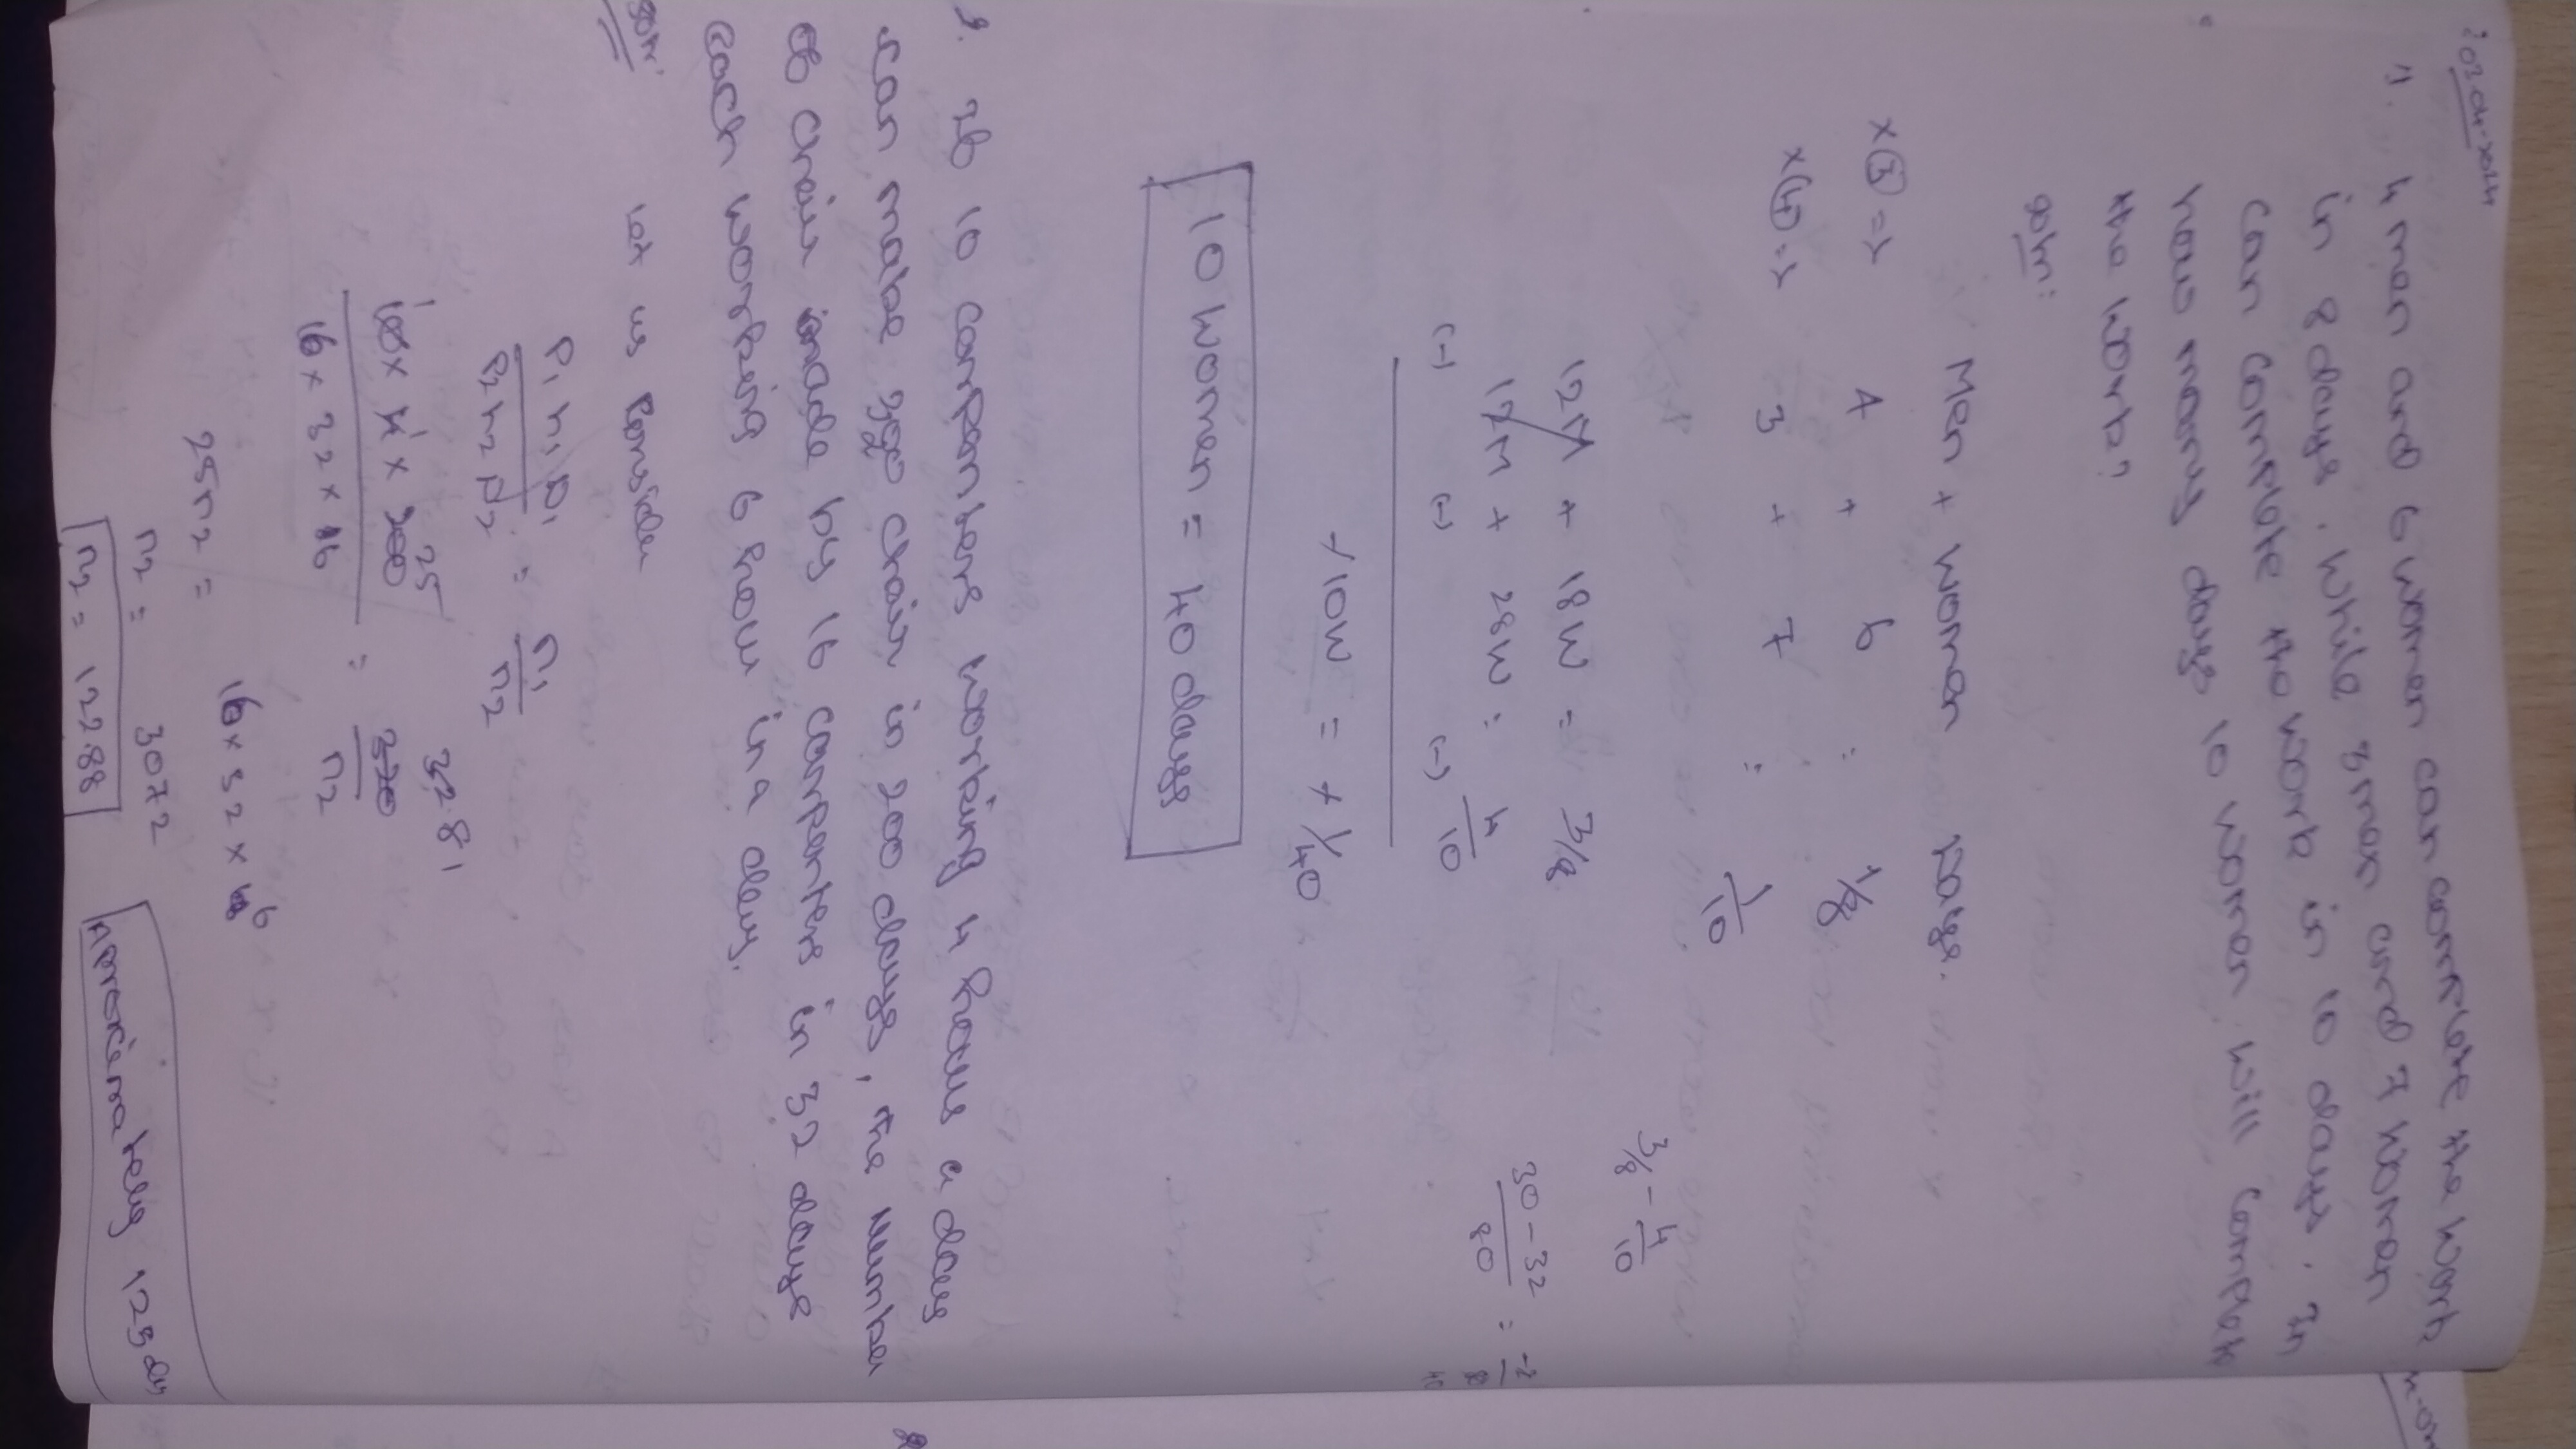 03-04-2024
1. 4 men and 6 women can complete the work
in 8 days. While 3 men and 7 women
can complete the work in 10 days. In
how many days 10 women will complete
the work?
soln:
Men + women Days.
×③ => 4 + 6 = 1/8
×④ => 3 + 7 = 1/10
3/8 - 4/10
12M + 18W = 3/8
30-32/80 = -2/80
12M + 28W = 4/10
40
(-) (-) (-)
+10W = + 1/40
10 women = 40 days
2. If 10 carpenters working 4 hours a day
can make 320 chair in 200 days, the Number
of chair made by 16 carpenters in 32 days
each working 6 hour in a day.
Soln: Let us Consider
P1 h1 D1 / P2 h2 D2 = n1/n2
1 1 25 32 8 1
10 × 4 × 200 / 16 × 32 × 6 = 320/n2
25n2 = 16 × 32 × 6
n2 = 3072
n2 = 122.88
Aproximately 123 days